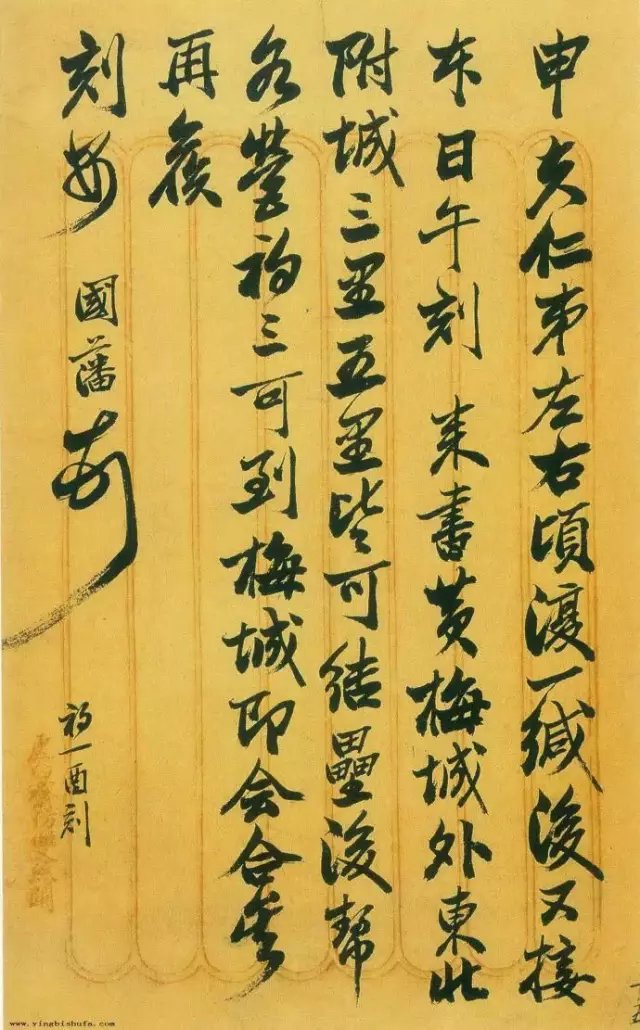 申夫仁弟左右頃復一緘後又接
本日午刻 來書黃梅城外東北
附城三里五里皆可結壘後幫
各營初三可到梅城即会合矣
再候
刻安 國藩頓
初一酉刻
www.yingbishufa.com